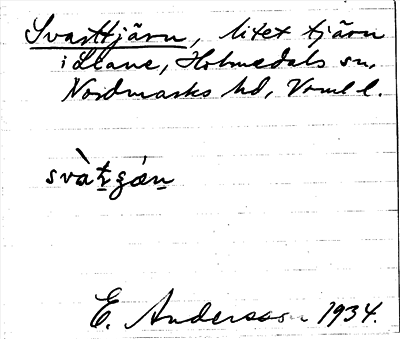 Svarttjärn, litet tjärn
i Leane, Holmedals sn,
Nordmarks hd, Vrml l.
E. Andersson 1934.